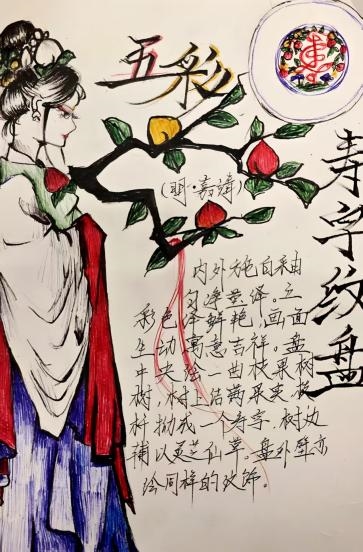 五彩
寿字纹盘
(明·嘉靖)
内外施白釉
匀净莹泽。五
彩色泽鲜艳,画面
生动寓意吉祥。盘
中央绘一曲枝果树
树,树上结满果实,枝
杆拗成一个寿字,树边
補以灵芝仙草。盘外壁亦
绘同样的纹饰